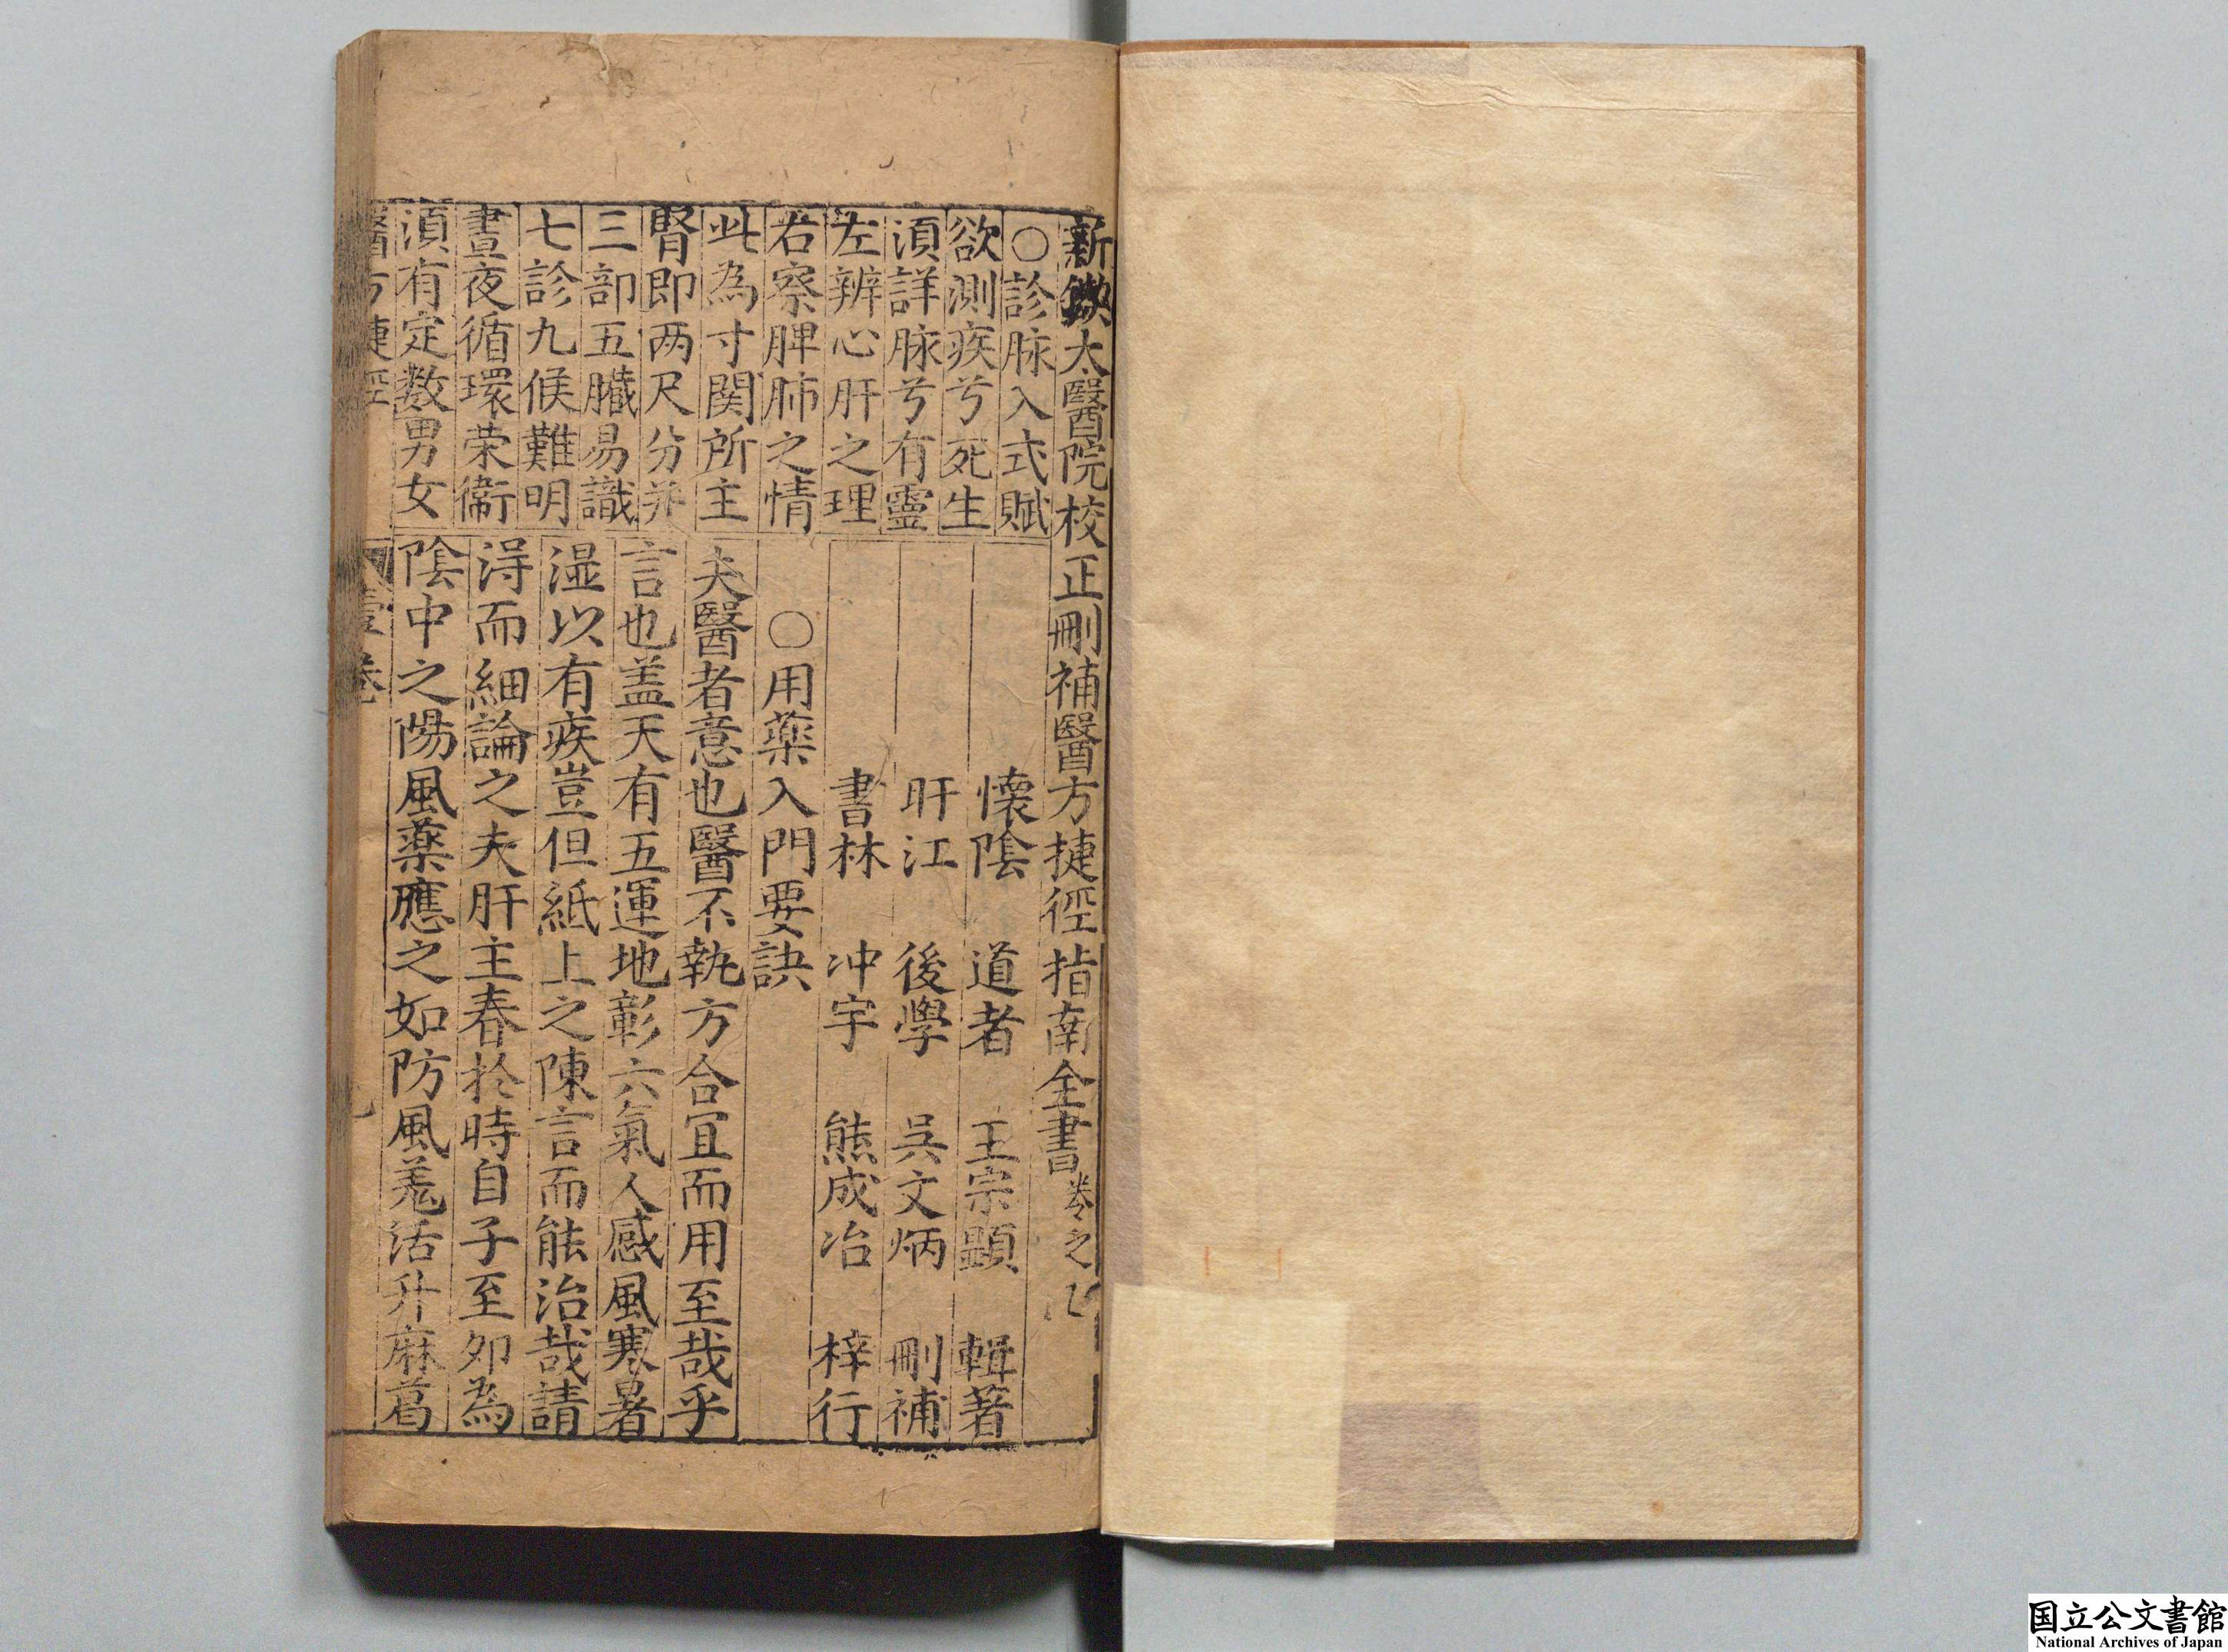 新鐫太醫院校正刪補醫方捷徑指南全書卷之
○診脉入式賦
欲測疾兮死生
湏詳脉兮有靈
左辨心肝之理
右察脾肺之情
此為寸関所主
腎即两尺分并
三部五臓易識
七診九候難明
晝夜循環荣衞
湏有定数男女
懐陰 道者 王宗顕 輯著
盱江 後學 吳文炳 刪補
書林 冲宇 熊成冶 梓行
○用藥入門要訣
夫醫者意也醫不執方合宜而用至哉乎
言也盖天有五運地彰六氣人感風寒暑
湿以有疾豈但紙上之陳言而能治哉請
淂而細論之夫肝主春於時自子至夘為
陰中之陽風薬應之如防風羗活升麻葛
醫方捷徑
壹卷
国立公文書館
National Archives of Japan